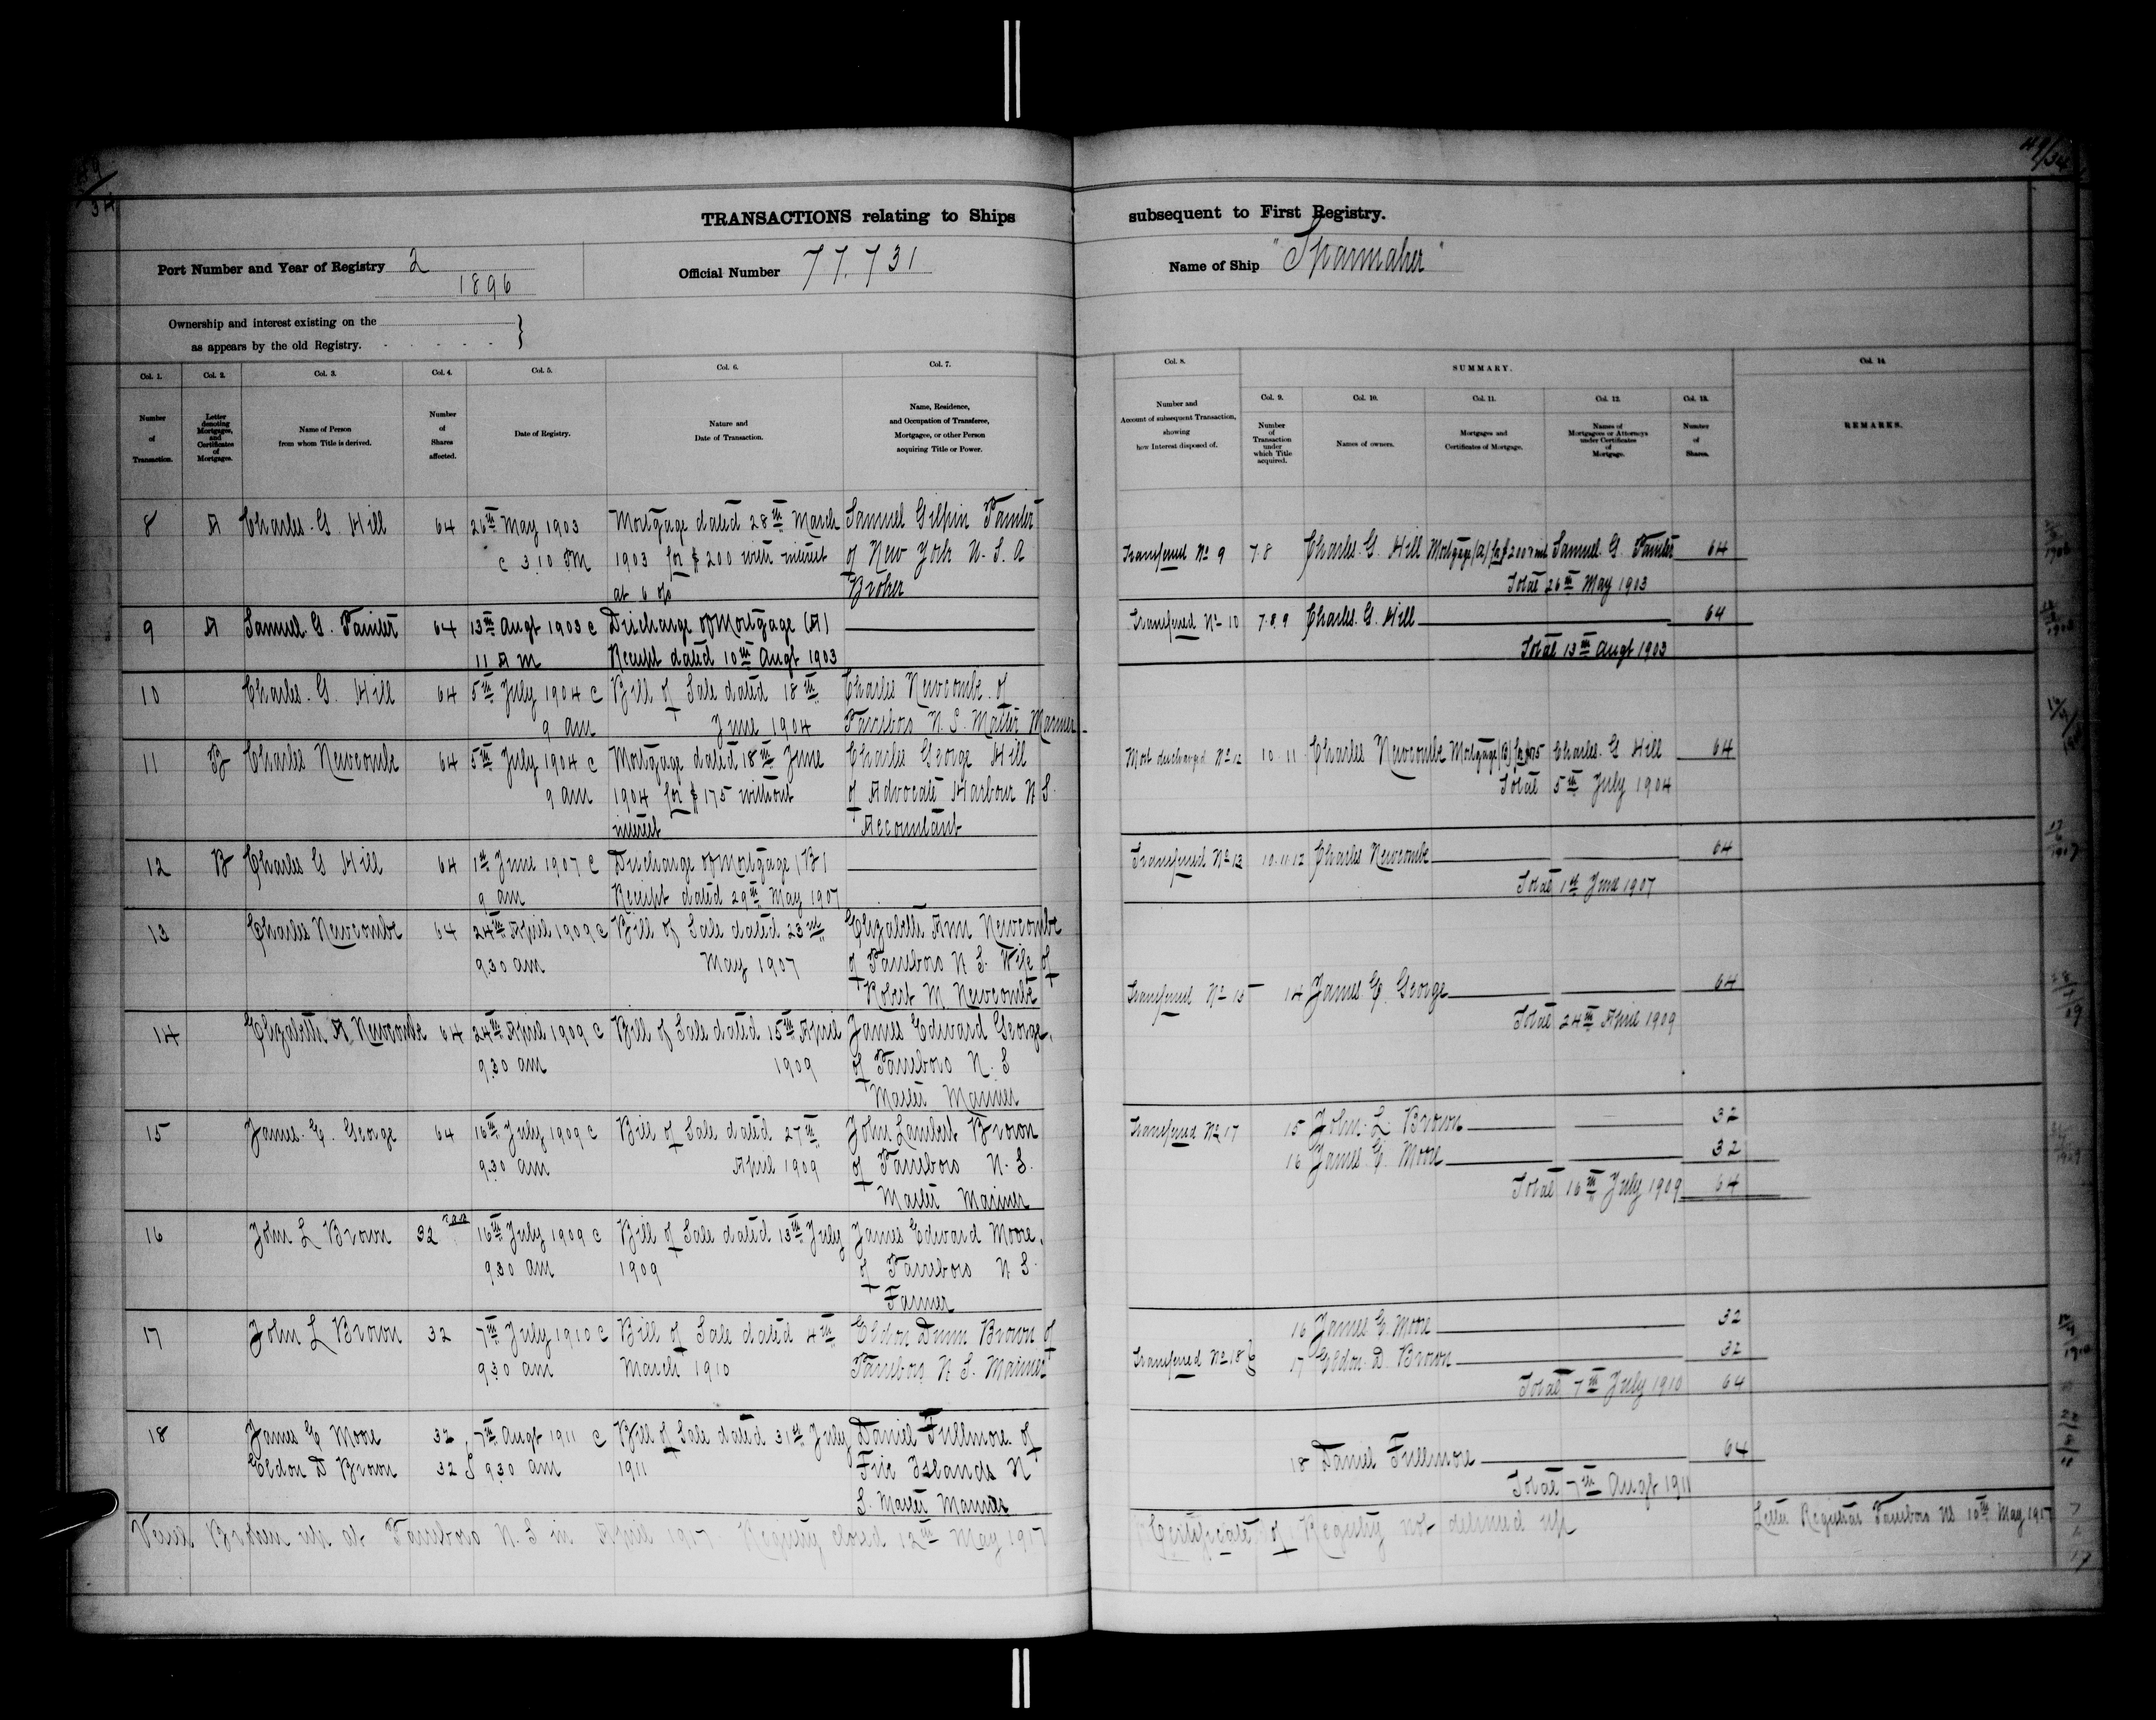 TRANSACTIONS relating to Ships subsequent to First Registry.
Port Number and Year of Registry 2
1896
Official Number 77.731
Name of Ship "Sparmaker"
Ownership and interest existing on the
as appears by the old Registry.
Col. 1. Col. 2. Col. 3. Col. 4. Col. 5. Col. 6. Col. 7.
Number of Transaction.
Letter denoting Mortgages, and Certificates of Mortgages.
Name of Person from whom Title is derived.
Number of Shares affected.
Date of Registry.
Nature and Date of Transaction.
Name, Residence, and Occupation of Transferee, Mortgagee, or other Person acquiring Title or Power.
8 A Charles. G. Hill 64 26th May 1903 Mortgage dated 28th March Samuel Gilpin Painter
c 3.10 PM 1903 for $200 with interest of New York U. S. A
at 6 o/o Broker
9 A Samuel. G. Painter 64 13th Augt 1903 c Discharge of Mortgage (A)
11 A M Receipt dated 10th Augt 1903
10 Charles. G. Hill 64 5th July 1904 c Bill of Sale dated 18th Charles Newcombe of
9 am June 1904 Parrsboro N. S. Master Mariner
11 B Charles Newcombe 64 5th July 1904 c Mortgage dated 18th June Charles George Hill
9 am 1904 for $175 without of Advocate Harbour N S.
interest Accountant
12 B Charles G Hill 64 1st June 1907 c Discharge of Mortgage (B)
9 am Receipt dated 29th May 1907
13 Charles Newcombe 64 24th April 1909 c Bill of Sale dated 23rd Elizabeth Ann Newcombe
9.30 am May 1907 of Parrsboro N S. Wife of
Robert M. Newcombe
14 Elizabeth A Newcombe 64 24th April 1909 c Bill of Sale dated 15th April James Edward George,
9.30 am 1909 of Parrsboro N. S
Master Mariner
15 James. E. George 64 16th July 1909 c Bill of Sale dated 27th John Lambert Brown
9.30 am April 1909 of Parrsboro N. S.
Master Mariner
16 John L Brown 32 16th July 1909 c Bill of Sale dated 13th July James Edward Moore,
9.30 am 1909 of Parrsboro N S.
Farmer
17 John L Brown 32 7th July 1910 c Bill of Sale dated 4th Eldon Dunn Brown of
9.30 am March 1910 Parrsboro N. S. Mariner
18 James E Moore 32 7th Augt 1911 c Bill of Sale dated 31st July Daniel Fullmore of
Eldon D Brown 32 9.30 am 1911 Five Islands N
S. Master Mariner
Vessel Broken up at Parrsboro N. S in April 1917 Registry closed 12th May 1917
49/34
Col. 8. SUMMARY. Col. 14.
Col. 9. Col. 10. Col. 11. Col. 12. Col. 13.
Number and Account of subsequent Transaction, showing how Interest disposed of.
Number of Transaction under which Title acquired.
Names of owners.
Mortgages and Certificates of Mortgage.
Names of Mortgagees or Attorneys under Certificates of Mortgage.
Number of Shares.
REMARKS.
Transferred No 9 7.8 Charles. G. Hill Mortgage (A) for $200 & int Samuel. G. Painter 64
Total 26th May 1903
Transferred No 10 7.8.9 Charles. G. Hill 64
Total 13th Augt 1903
Mort discharged No 12 10.11 Charles Newcombe Mortgage (B) for $175 Charles. G Hill 64
Total 5th July 1904
Transferred No 13 10.11.12 Charles Newcombe 64
Total 1st June 1907
Transferred No 15 14 James. E. George 64
Total 24th April 1909
Transferred No 17 15 John. L. Brown 32
16 James. E. Moore 32
Total 16th July 1909 64
16 James E. Moore 32
Transferred No 18 17 Eldon. D. Brown 32
Total 7th July 1910 64
18 Daniel Fullmore 64
Total 7th Augt 1911
Certificate of Registry not delivered up Letter Registrar Parrsboro NS 10th May 1917